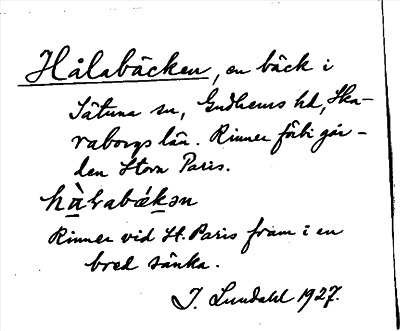 Hålabäcken, en bäck i
Sätuna sn, Gudhems hd, Ska-
raborgs län. Rinner förbi går-
den Stora Paris.
hàlabäkən
Rinner vid St. Paris fram i en
bred sänka.
J. Lundahl 1927.